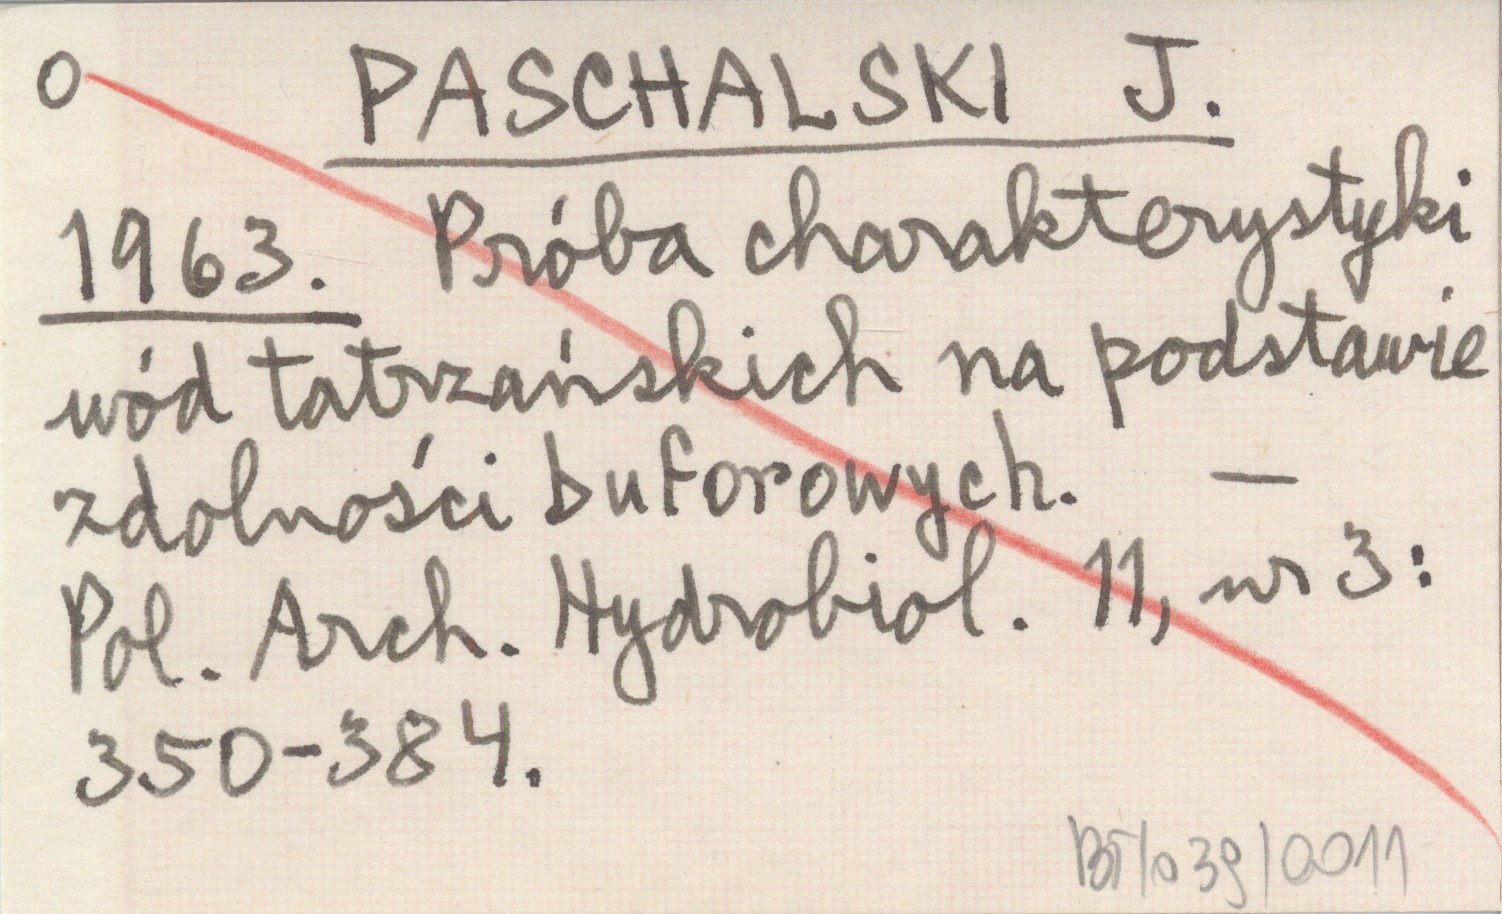 O PASCHALSKI J.
1963. Próba charakterystyki
wód tatrzańskich na podstawie
zdolności buforowych. —
Pol. Arch. Hydrobiol. 11, nr 3:
350-384.
BT/039/0011